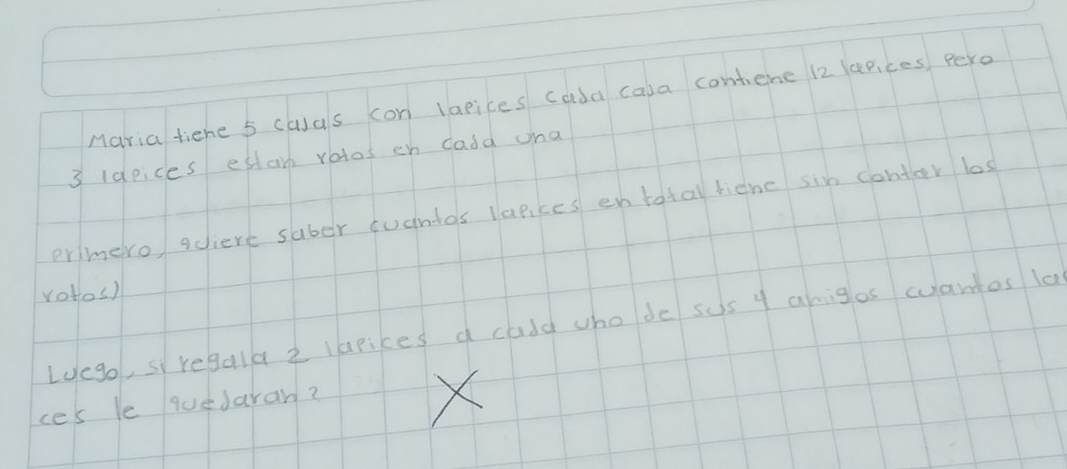 Maria tiene 5 cajas con lapices cada caja contiene 12 lapices, pero
3 lapices estan rotos en cada una
primero, quiere saber cuantos lapices en total tiene sin contar los
rotos)
Luego, si regala 2 lapices a cada uno de sus 4 amigos cuantos la
ces le quedaran?
X